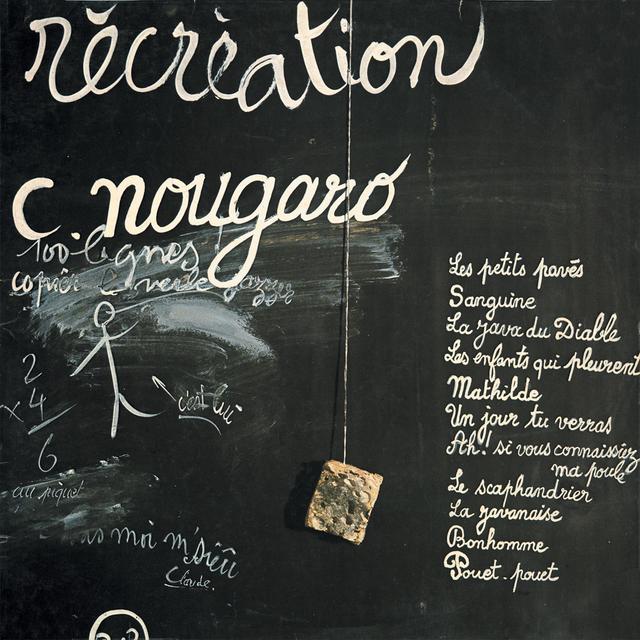 récréation
c. nougaro
100 lignes
copier le verbe
c'est lui
2
x4
6
au piquet
pas moi m'sieu
Claude.
Les petits pavés
Sanguine
La java du Diable
Les enfants qui pleurent
Mathilde
Un jour tu verras
Ah! si vous connaissiez
ma poule
Le scaphandrier
La javanaise
Bonhomme
Pouet-pouet